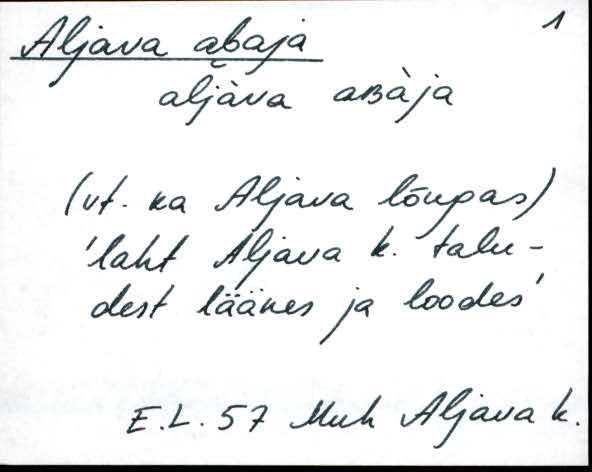 1
Aljava abaja
aljàva aʙàja
(vt. ka Aljava lõugas)
'laht Aljava k. talu-
dest läänes ja loodes'
E.L. 57 Muh Aljava k.